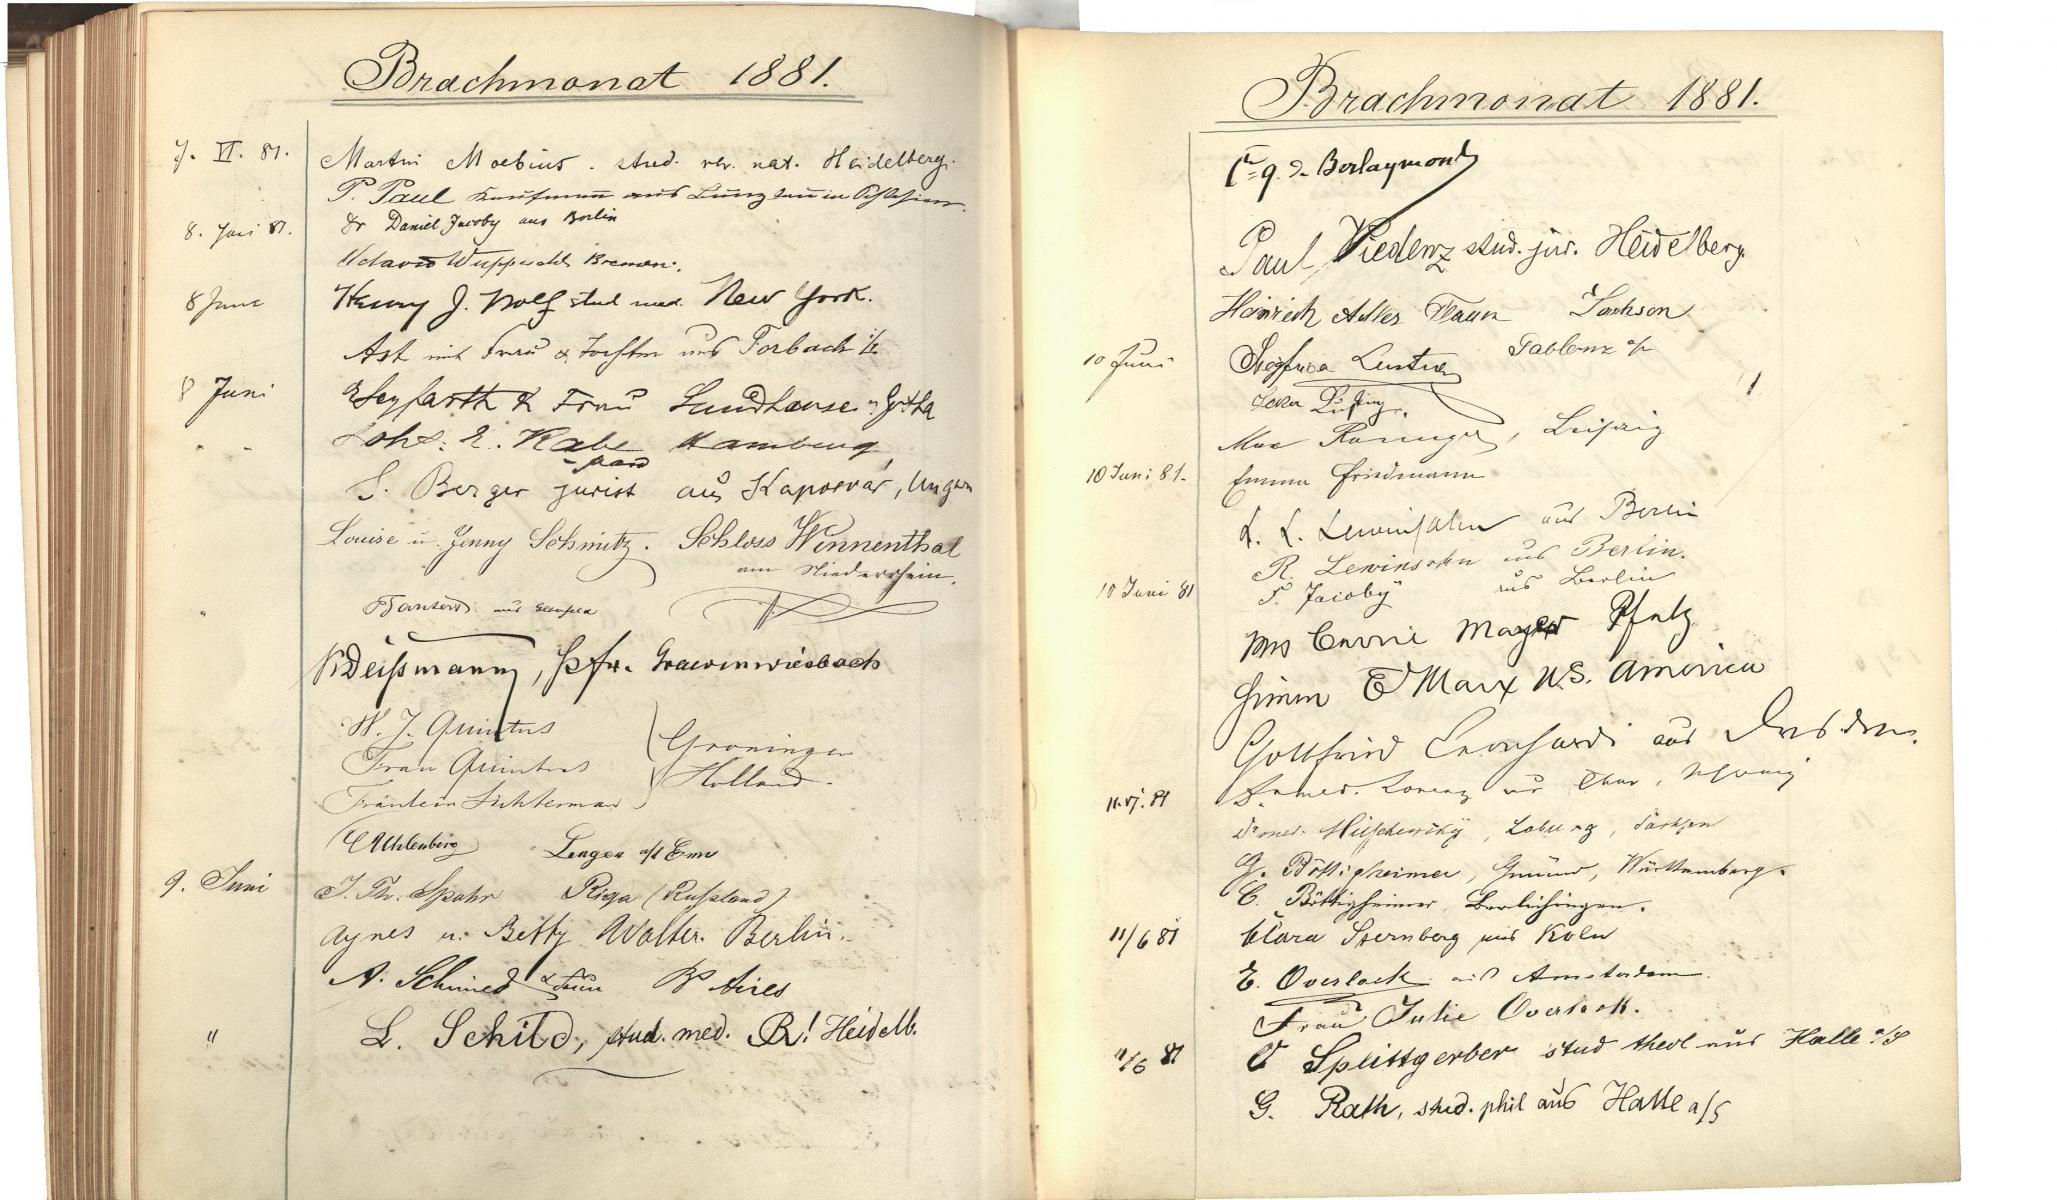 Brachmonat 1881.
7. VI. 81. Martin Moebius. stud. rer. nat. Heidelberg.
P. Paul Kaufmann aus in Schlesien.
8. Juni 81. Dr Daniel Jacoby aus Berlin
Bremen.
8 June Henry J. Wolf stud med. New York.
Ast mit Frau & Tochter aus Forbach i/L
8 Juni Seyfarth & Frau Sundhausen Gotha
" " E. Kabe Hamburg
S. Berger jurist aus Kaposvár, Ungarn
Louise u. Jenny Schmitz. Schloss Winnenthal
am Niederrhein.
" aus
Deißmann, Pfr. Graevenwiesbach
W. J. Quintus
Frau Quintus
Fräulein Lichterman
Groningen
Holland
Uhlenberg Lengen
9. Juni J. Th. Spohr Riga (Russland)
Agnes u. Betty Walter. Berlin.
A. Schmied & Frau Bs Aires
" L. Schild, stud. med. Heidelb.
Brachmonat 1881.
de Berlaymont
Paul Viedenz stud. jur. Heidelberg.
Heinrich Adler
10 Juni Siegfried
Max, Leipzig
10 Juni 81. Emma Friedmann
L. L. Lewinsohn aus Berlin
R. Lewinsohn aus Berlin.
10 Juni 81 F. Jacoby aus Berlin
Mrs Carrie Mayer Pfalz
E Marx U.S. America
Gottfried Leonhardi aus Dresden.
11. VI. 81 Dr med. Lorenz aus Chur, Schweiz
Dr med., Loburg, Sachsen
G. Böttigheimer, Gmünd, Württemberg.
C. Böttigheimer, Berlichingen.
11/6 81 Clara Sternberg aus Köln
E. Overlack aus Amsterdam
Frau Julie Overlack.
11/6 81 Splittgerber stud theol aus Halle a/S
G. Rath, stud. phil aus Halle a/S